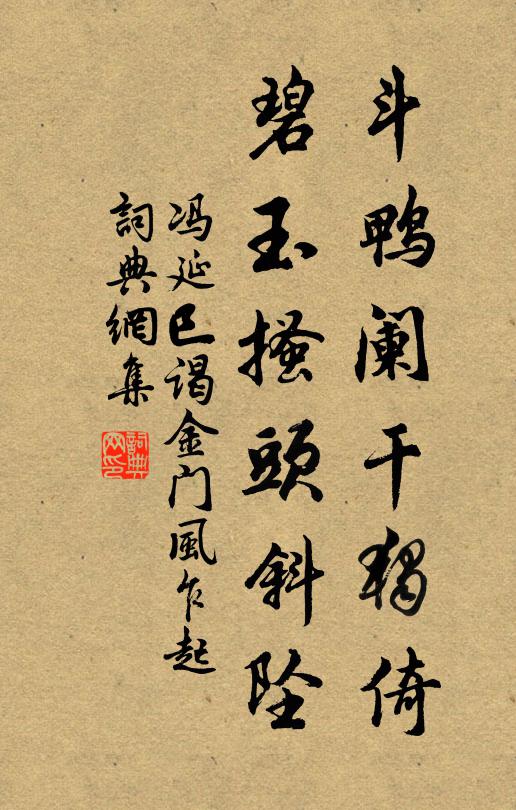 斗鸭阑干独倚
碧玉搔頭斜坠
冯延巳谒金门風乍起
詞典網集
詞典网印